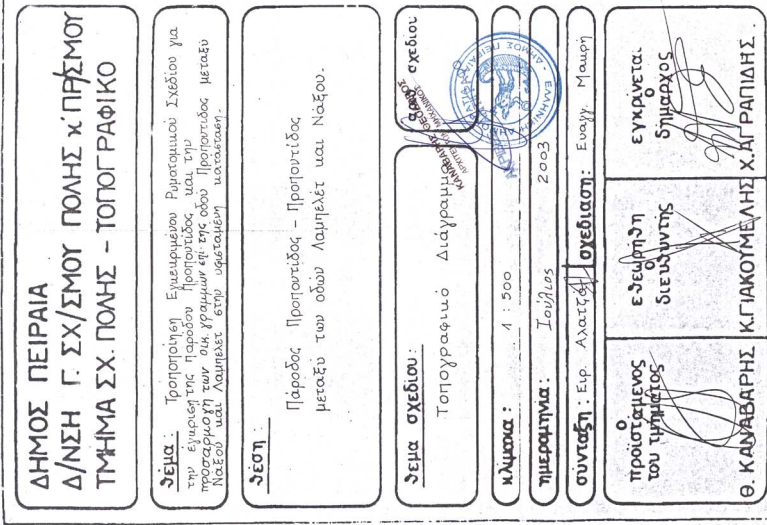 ΔΗΜΟΣ ΠΕΙΡΑΙΑ
Δ/ΝΣΗ Γ. ΣΧ/ΣΜΟΥ ΠΟΛΗΣ κ' ΠΡ/ΣΜΟΥ
ΤΜΗΜΑ ΣΧ. ΠΟΛΗΣ - ΤΟΠΟΓΡΑΦΙΚΟ
θέμα: Τροποποίηση Εγκεκριμένου Ρυμοτομικού Σχεδίου για
την έγκριση της παρόδου Προποντίδος και την
προσαρμογή των οικ. γραμμών επί της οδού Προποντίδος μεταξύ
Νάξου και Λαμπελέτ στην υφισταμένη κατάσταση.
θέση:
Πάροδος Προποντίδος - Προποντίδος
μεταξύ των οδών Λαμπελέτ και Νάξου.
θεμα σχεδίου:
Τοπογραφικό Διάγραμμα
σχεδίου
κλίμακα: 1:500
ημερομηνία: Ιούλιος 2003
σύνταξη: Ειρ. Αλατζά
σχεδίαση: Ευαγγ. Μαυρή
ο
προϊστάμενος
του τμήματος
Θ. ΚΑΝΑΒΑΡΗΣ
εθεωρήθη
ο
διευθυντής
Κ.ΓΙΑΚΟΥΜΕΛΗΣ
εγκρίνεται
ο
δήμαρχος
Χ.ΑΓΡΑΠΙΔΗΣ.
ΕΛΛΗΝΙΚΗ ΔΗΜΟΚΡΑΤΙΑ
ΔΗΜΟΣ ΠΕΙΡΑΙΑ
ΚΑΝΑΒΑΡΗΣ